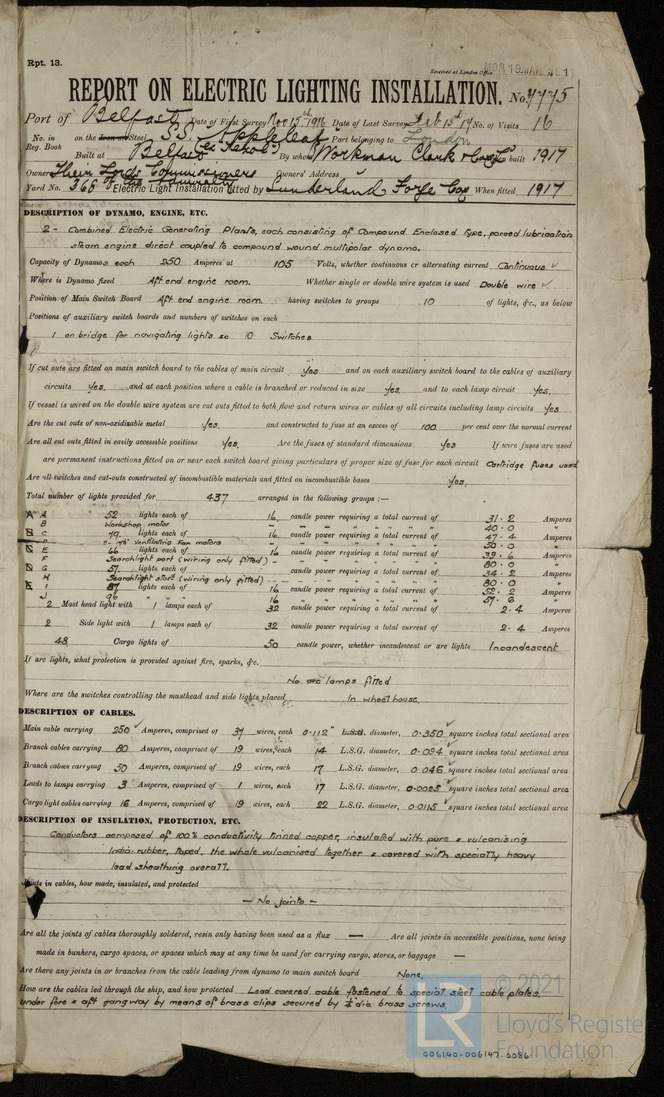 Rpt. 13.
Received at London Office MON. 19 MAR.
REPORT ON ELECTRIC LIGHTING INSTALLATION. No. 7775
Port of Belfast Date of First Survey Nov 15th 1916 Date of Last Survey Feb 13th 17 No. of Visits 16
No. in Reg. Book on the Iron or Steel S.S. "Appleleaf" Port belonging to London
(ex Texol)
Built at Belfast By whom Workman Clark & Co Ld When built 1917
Owners Their Lords Commissioners of the Admiralty Owners' Address
Yard No. 368 Electric Light Installation fitted by Sunderland Forge Coy When fitted 1917
DESCRIPTION OF DYNAMO, ENGINE, ETC.
2 - Combined Electric Generating Plants, each consisting of Compound Enclosed Type, forced lubrication
steam engine direct coupled to compound wound multipolar dynamo.
Capacity of Dynamos each 250 Amperes at 105 Volts, whether continuous or alternating current Continuous
Where is Dynamo fixed Aft end engine room. Whether single or double wire system is used Double wire
Position of Main Switch Board Aft end engine room. having switches to groups 10 of lights, &c., as below
Positions of auxiliary switch boards and numbers of switches on each
1 on bridge for navigating lights &c 10 Switches
If cut outs are fitted on main switch board to the cables of main circuit Yes and on each auxiliary switch board to the cables of auxiliary
circuits Yes. and at each position where a cable is branched or reduced in size Yes. and to each lamp circuit Yes.
If vessel is wired on the double wire system are cut outs fitted to both flow and return wires or cables of all circuits including lamp circuits Yes
Are the cut outs of non-oxidizable metal Yes. and constructed to fuse at an excess of 100 per cent over the normal current
Are all cut outs fitted in easily accessible positions Yes. Are the fuses of standard dimensions Yes If wire fuses are used
are permanent instructions fitted on or near each switch board giving particulars of proper size of fuse for each circuit Cartridge fuses used
Are all switches and cut-outs constructed of incombustible materials and fitted on incombustible bases Yes.
Total number of lights provided for 437 arranged in the following groups :—
A 52 lights each of 16 candle power requiring a total current of 31.2 Amperes
B Workshop motor 40.0
C 79 lights each of 16 candle power requiring a total current of 47.4 Amperes
D Ventilating Fan motors 50.0
E 66 lights each of 16 candle power requiring a total current of 39.6 Amperes
F Searchlight port (wiring only fitted) 80.0
G 57 lights each of 16 candle power requiring a total current of 34.2 Amperes
H Searchlight star'd (wiring only fitted) 80.0
I 87 lights each of 16 candle power requiring a total current of 52.2 Amperes
J 96 16 57.6
2 Mast head light with 1 lamps each of 32 candle power requiring a total current of 2.4 Amperes
2 Side light with 1 lamps each of 32 candle power requiring a total current of 2.4 Amperes
48 Cargo lights of 50 candle power, whether incandescent or arc lights Incandescent
If arc lights, what protection is provided against fire, sparks, &c.
No arc lamps fitted
Where are the switches controlling the masthead and side lights placed In wheelhouse.
DESCRIPTION OF CABLES.
Main cable carrying 250 Amperes, comprised of 37 wires, each 0.112" L.S.G. diameter, 0.350 square inches total sectional area
Branch cables carrying 80 Amperes, comprised of 19 wires, each 14 L.S.G. diameter, 0.094 square inches total sectional area
Branch cables carrying 50 Amperes, comprised of 19 wires, each 17 L.S.G. diameter, 0.046 square inches total sectional area
Leads to lamps carrying 3 Amperes, comprised of 1 wires, each 17 L.S.G. diameter, 0.0025 square inches total sectional area
Cargo light cables carrying 16 Amperes, comprised of 19 wires, each 22 L.S.G. diameter, 0.0115 square inches total sectional area
DESCRIPTION OF INSULATION, PROTECTION, ETC.
Conductors composed of 100% conductivity tinned copper, insulated with pure & vulcanising
India rubber, taped, the whole vulcanised together & covered with specially heavy
lead sheathing overall.
Joints in cables, how made, insulated, and protected
— No joints —
Are all the joints of cables thoroughly soldered, resin only having been used as a flux — Are all joints in accessible positions, none being
made in bunkers, cargo spaces, or spaces which may at any time be used for carrying cargo, stores, or baggage —
Are there any joints in or branches from the cable leading from dynamo to main switch board None.
How are the cables led through the ship, and how protected Lead covered cable fastened to special steel cable plates,
under fore & aft gangway by means of brass clips secured by ¼" dia brass screws.
LR © 2021
Lloyd's Register
Foundation
006140-006147-0086